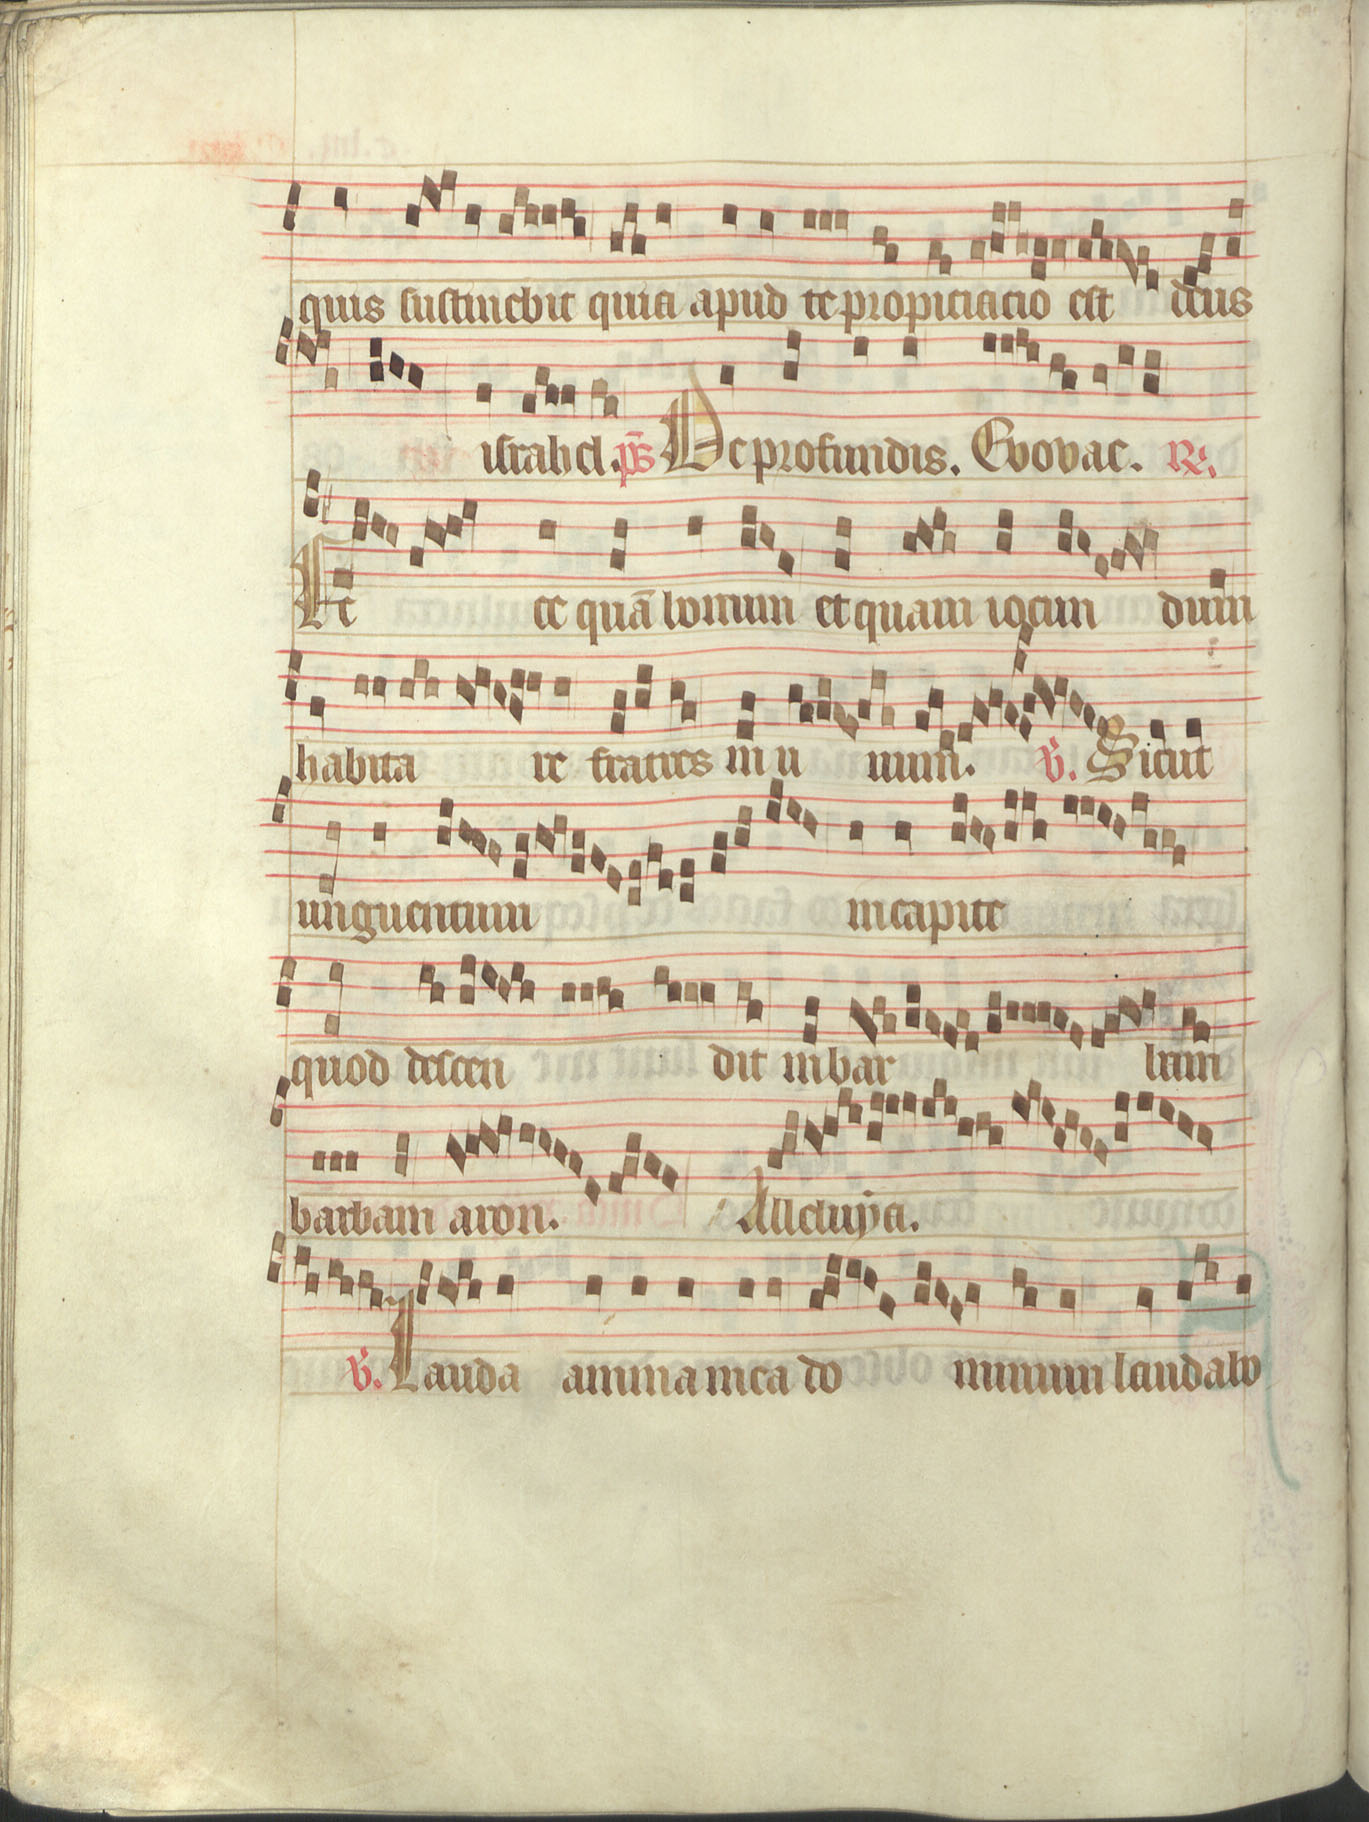 quis sustinebit quia apud te propiciacio est deus
israhel. ps̄ De profundis. Evovae. R.
Ecce quā bonum et quam iocundum
habitare fratres in unum. V. Sicut
unguentum in capite
quod descendit in barbam
barbam aron. Alleluya.
V. Lauda anima mea dominum laudabo